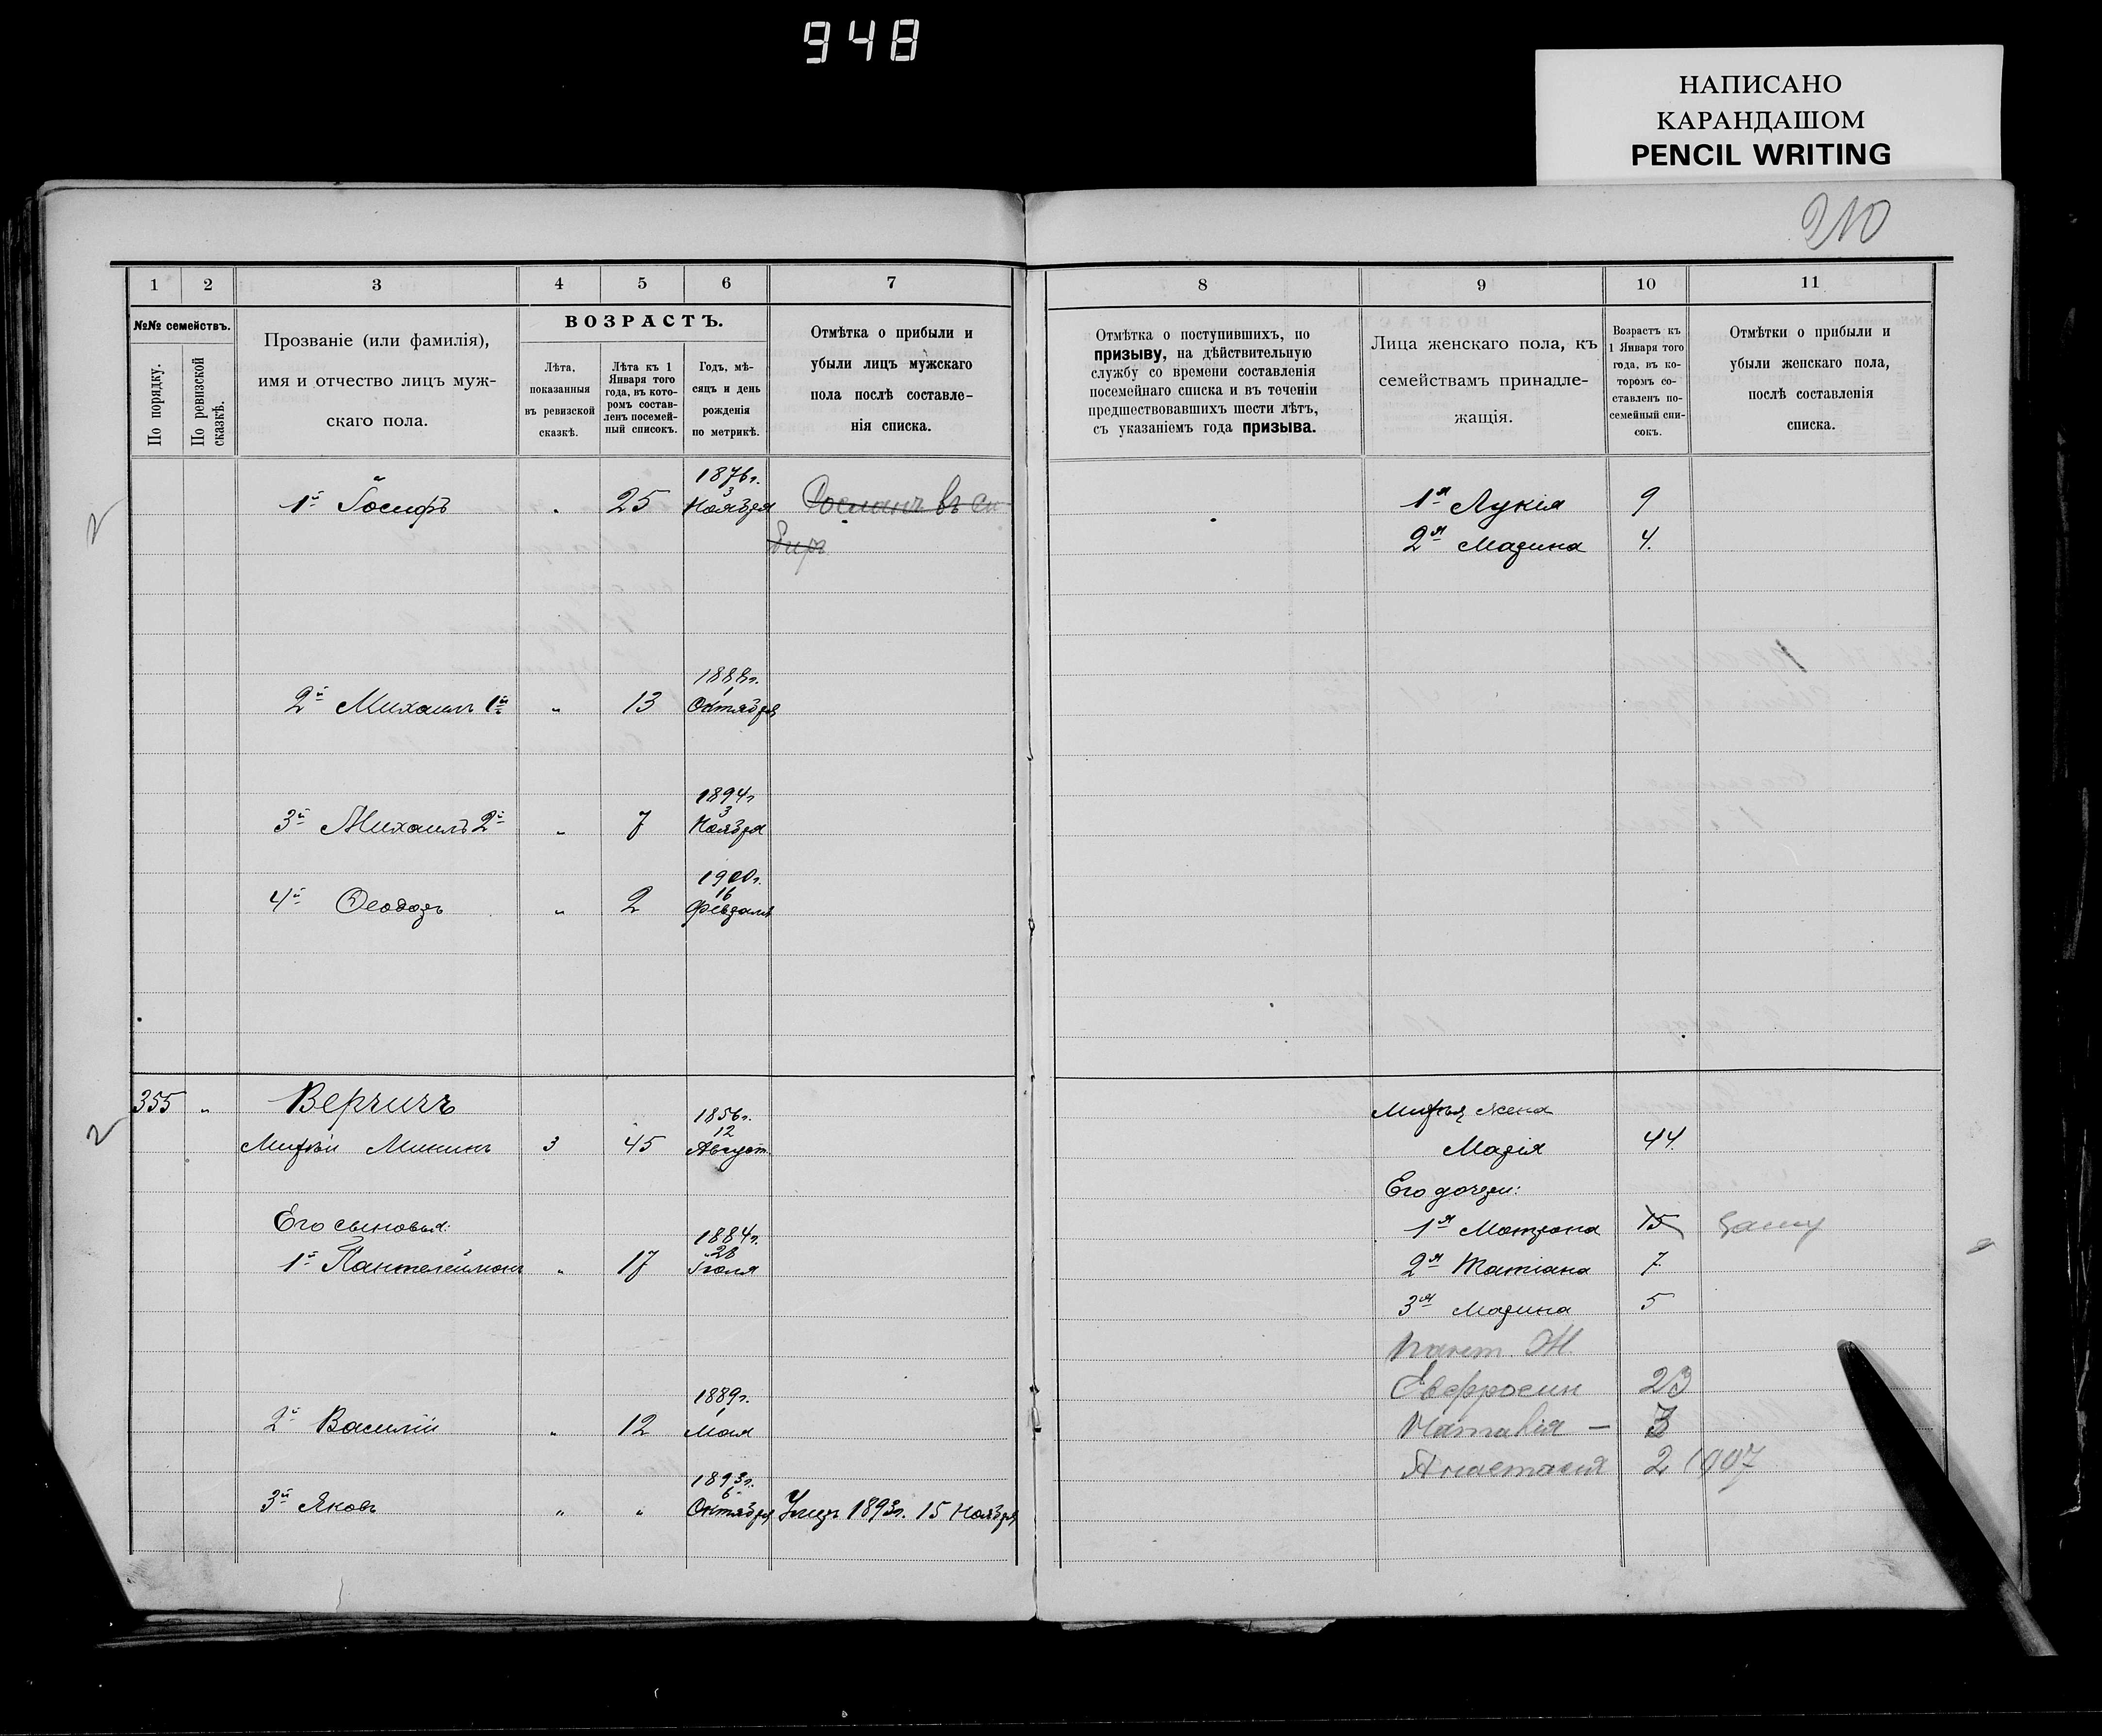 948
НАПИСАНО
КАРАНДАШОМ
PENCIL WRITING
210
1
2
3
4
5
6
7
№№ семействъ.
По порядку.
По ревизской сказкѣ.
Прозваніе (или фамилія),
имя и отчество лицъ муж-
скаго пола.
ВОЗРАСТЪ.
Лѣта,
показанныя
въ ревизской
сказкѣ.
Лѣта къ 1
Января того
года, въ кото-
ромъ состав-
ленъ посемей-
ный списокъ.
Годъ, мѣ-
сяцъ и день
рожденія
по метрикѣ.
Отмѣтка о прибыли и
убыли лицъ мужскаго
пола послѣ составле-
нія списка.
8
9
10
11
Отмѣтка о поступившихъ, по
призыву, на дѣйствительную
службу со времени составленія
посемейнаго списка и въ теченіи
предшествовавшихъ шести лѣтъ,
съ указаніемъ года призыва.
Лица женскаго пола, къ
семействамъ принадле-
жащія.
Возрастъ къ
1 Января того
года, въ ко-
торомъ со-
ставленъ по-
семейный спи-
сокъ.
Отмѣтки о прибыли и
убыли женскаго пола,
послѣ составленія
списка.
1876г.
3
2 1й Іосифъ 25 Ноября въ Си
бирь
1888г.
1
2й Михаилъ 1й " 13 Октября
1894г
3
3й Михаилъ 2й " 7 Ноября
1900г.
16
4й Ѳеодоръ " 2 Февраля
355 " Верчичъ
1856г.
12
2 Мининъ 3 45 Август.
Его сыновья:
1884г.
28
1й Пантелеймонъ " 17 Іюля
1889г.
1
2й Василій " 12 Мая
1893г.
6
3й Яковъ " " Октября Умеръ 1893г. 15 Ноября
1я Лукія 9
2я Марина 4.
жена
Марія 44.
Его дочери:
1я Матрона 15
2я Татіана 7
3я Марина 5
Ж.
Евфросин 23
Наталія — 3
Анастасія 2 1907